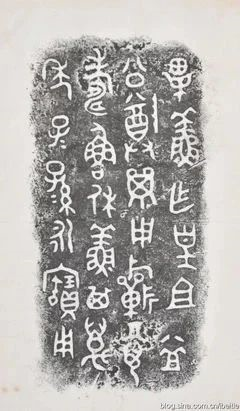 畢鮮乍皇且益
公尊𣪘用𣄨眉
壽魯休鮮其萬
年子孫永寶用
blog.sina.com.cn/ibeitie